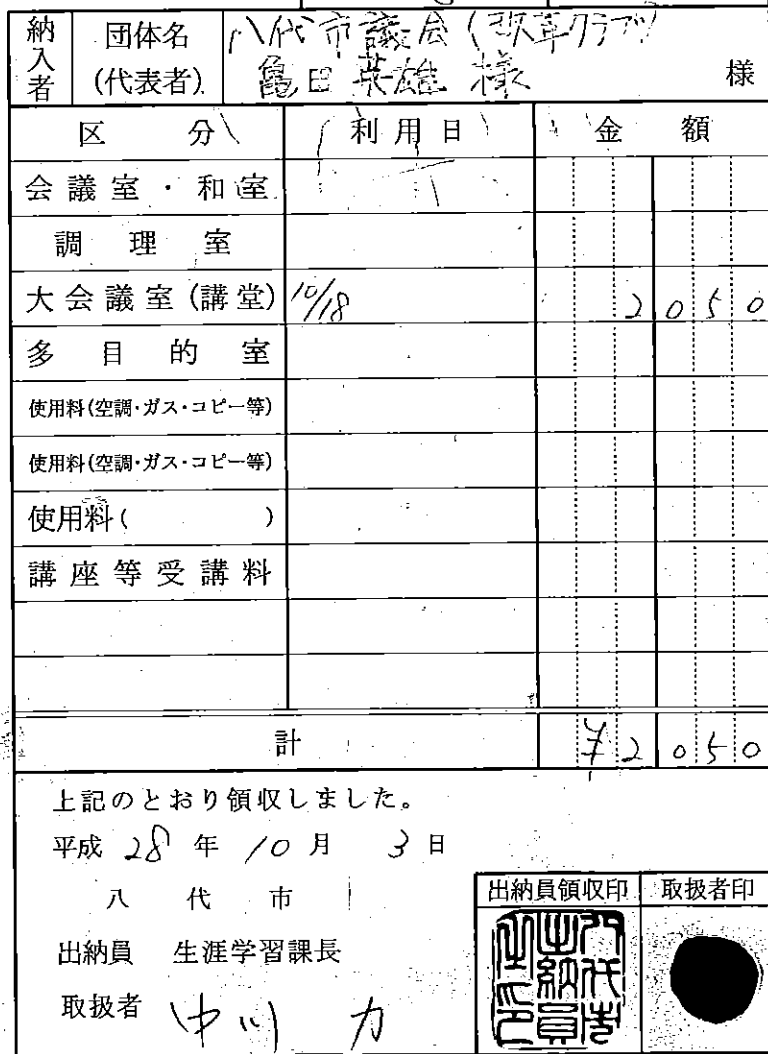 納入者 団体名(代表者) 八代市議会(改革クラブ)
亀田英雄 様 様
区分 利用日 金額
会議室・和室
調理室
大会議室(講堂) 10/18 2050
多目的室
使用料(空調・ガス・コピー等)
使用料(空調・ガス・コピー等)
使用料( )
講座等受講料
計 ¥2050
上記のとおり領収しました。
平成 28 年 10 月 3 日
八代市
出納員領収印 取扱者印
出納員 生涯学習課長
取扱者 中川 力
八代市出納員之印